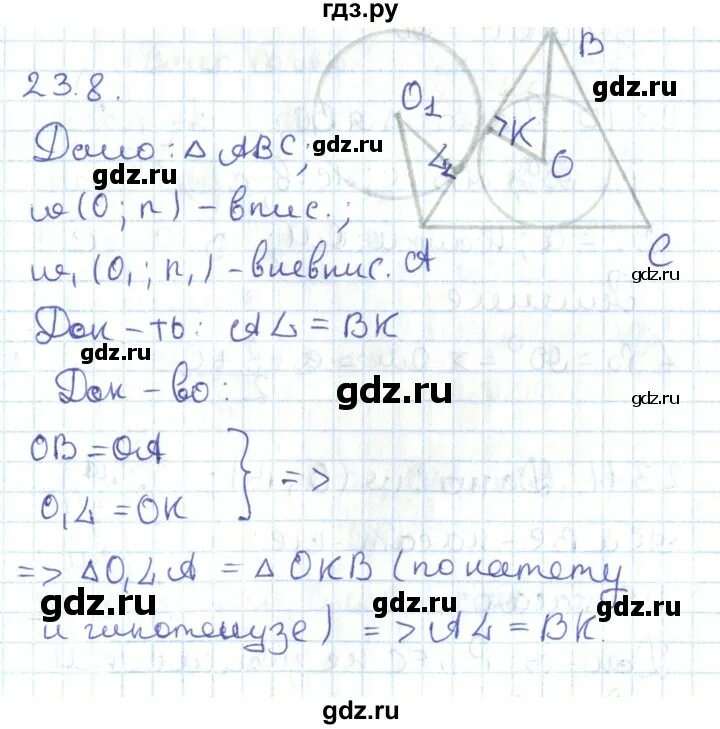 гдз.ру
23.8.
Дано: △ ABC;
w(O; r) – впис.;
w₁(O₁; r₁) – вневпис.
Док-ть: AL = BK
Док-во:
OB = OA
O₁L = OK
} =>
=> △O₁LA = △OKB (по катету
и гипотенузе) => AL = BK.
O₁
L
K
O
B
A
C
gdz.ru
gdz.ru
gdz.ru
gdz.ru
gdz.ru
gdz.ru
gdz.ru
gdz.ru
gdz.ru
gdz.ru
gdz.ru